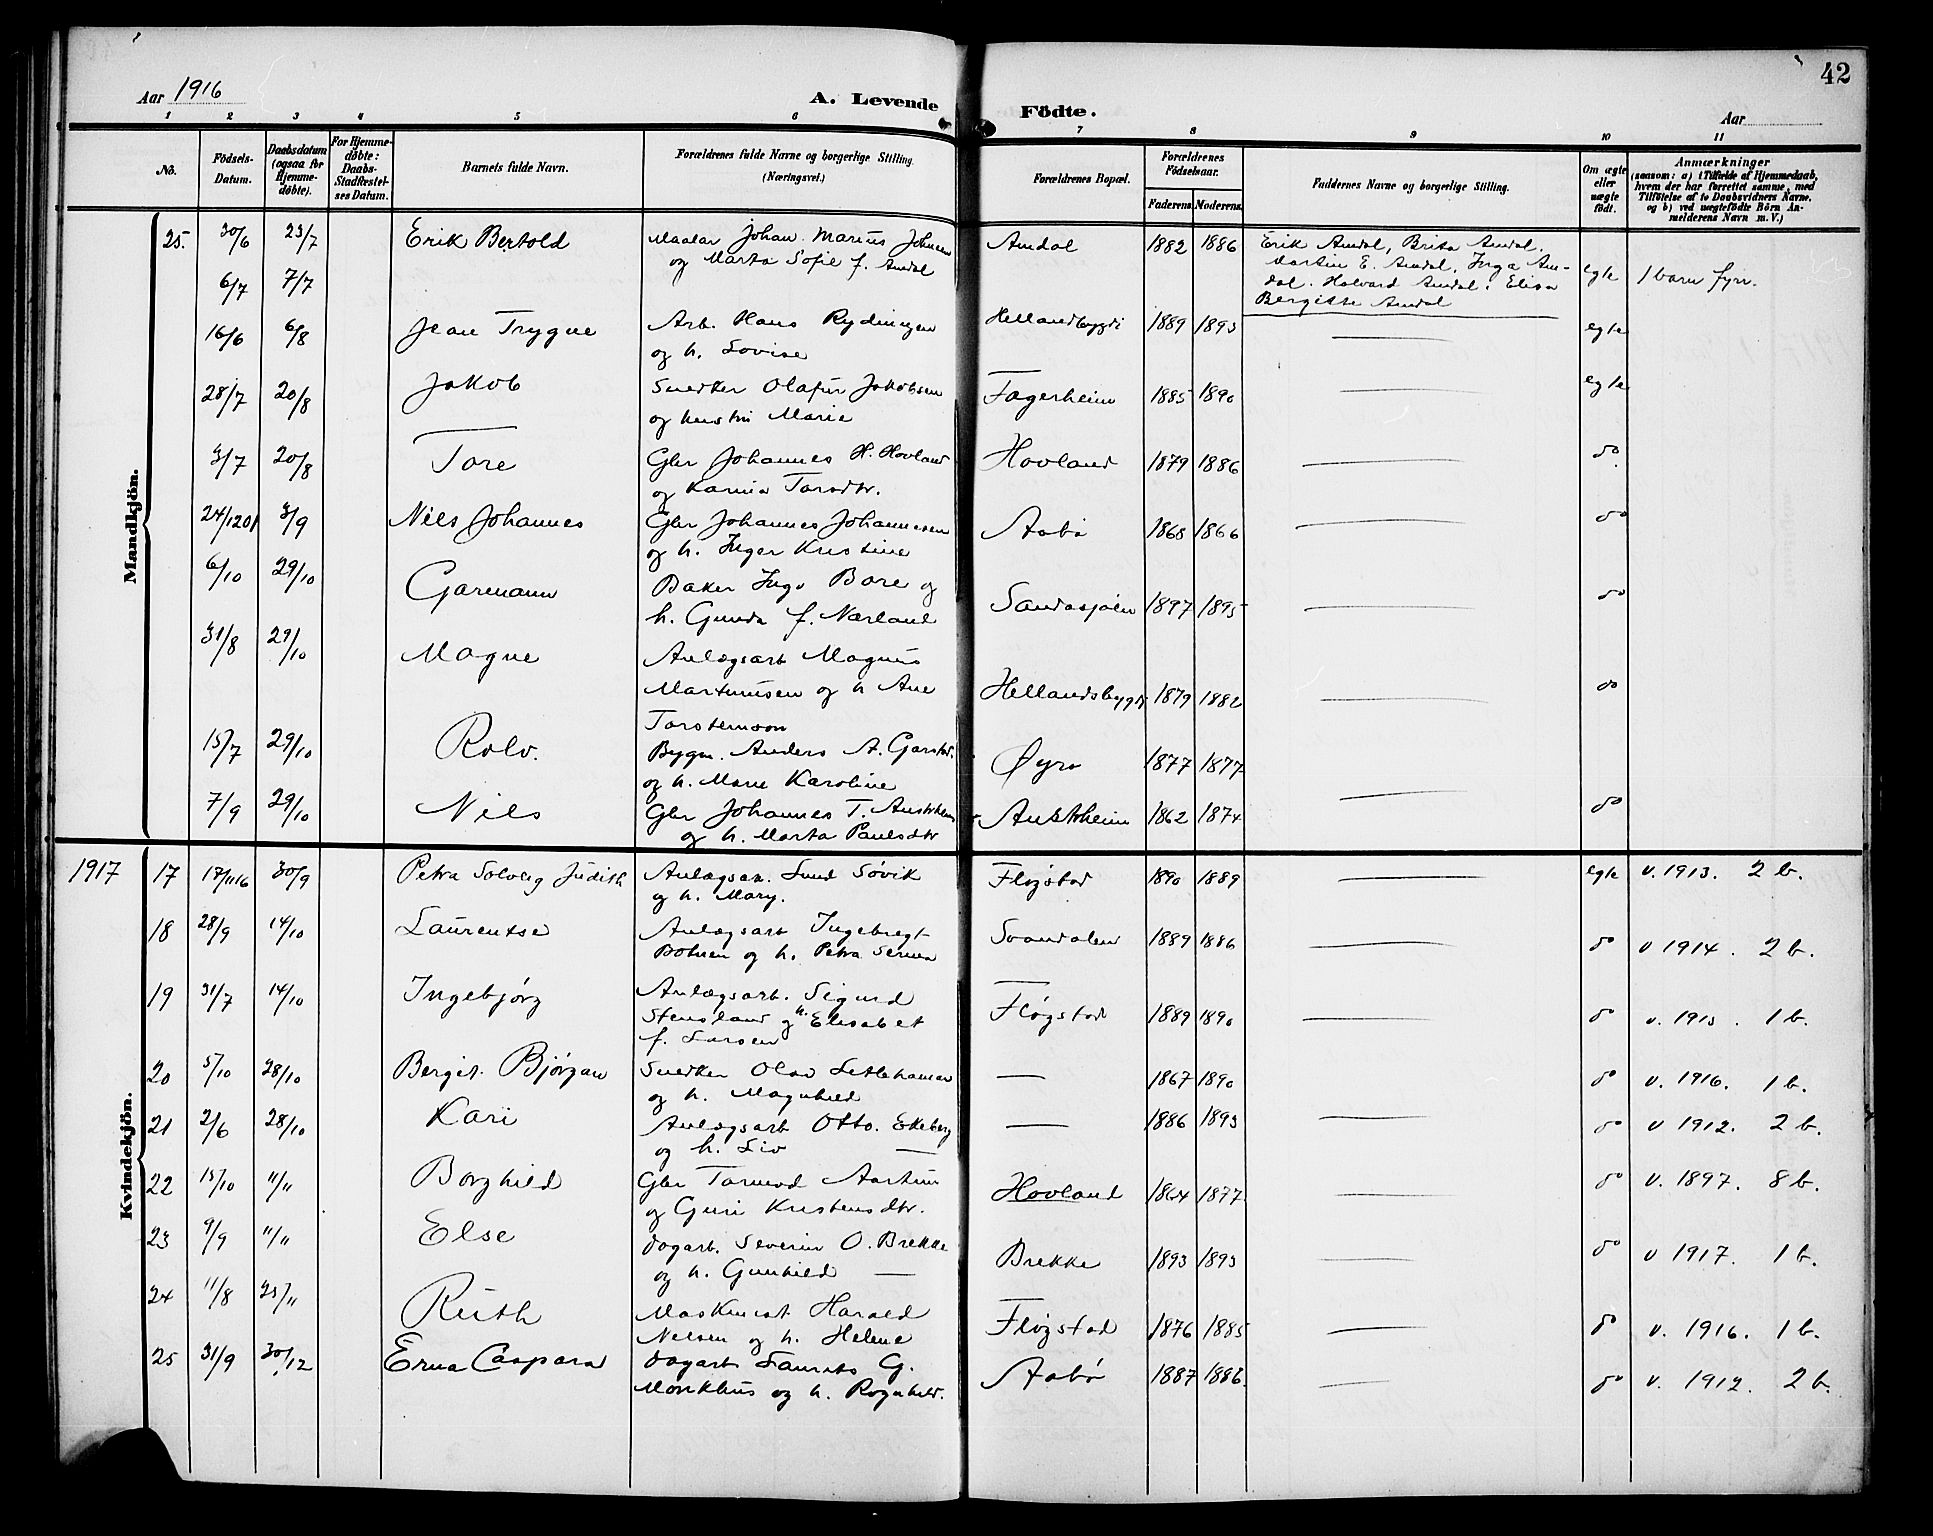 42
Aar 1916
A. Levende Födte.
Aar
1 2 3 4 5 6 7 8 9 10 11
No.
Födsels-Datum.
Daabsdatum (ogsaa for Hjemmedöbte).
For Hjemmedöbte: Daabs-Stadfæstelses Datum.
Barnets fulde Navn.
Forældrenes fulde Navne og borgerlige Stilling. (Næringsvei.)
Forældrenes Bopæl.
Forældrenes Födselsaar.
Faderens. Moderens.
Faddernes Navne og borgerlige Stilling.
Om ægte eller uægte födt.
Anmærkninger
(saasom: a) i Tilfælde af Hjemmedaab, hvem der har forrettet samme, med Tilföielse af to Daabsvidners Navne, og b) ved uægtefödte Börn Anmelderens Navn m. V.)
Mandkjön.
25. 30/6 23/7 Erik Bertold Maalar Johan Marius Johnsen Amdal 1882 1886 Erik Amdal, Brita Amdal,
og Marta Sofie f. Amdal Martin E. Amdal, Inga Am-
6/7 7/7 dal. Halvard Amdal. Elisa egte 1 barn fyrr.
Bergitte Amdal
16/6 6/8 Jean Trygve Arb. Hans Rydningen Hellandsbygdi 1889 1893 — egte
og h. Lovise
28/7 20/8 Jakob Snedker Olafur Jakobsen Fagerheim 1885 1890 — egte
og hustru Marie
3/7 20/8 Tore Gbr Johannes H. Hovland Hovland 1879 1886 — do
og Karina Torsdtr.
24/12 01 3/9 Nils Johannes Gbr Johannes Johannesen Aabö 1868 1866 — do
og h. Inger Kristine
6/10 29/10 Garmann Baker Inge Bore og Sandasjöen 1897 1895 — do
h. Gunda f. Nærland
31/8 29/10 Magne Anlægsarb Magnus
Martinusen og h Ane Hellandsbygdi 1879 1882 — do
Torstemson
15/7 29/10 Rolv. Bygm. Anders A. Garstad Øyra 1877 1877 —
og h. Marie Karoline
7/9 29/10 Nils Gbr Johannes T. Austrheim Austrheim 1862 1874 do
og h. Marta Paulsdtr
Kvindekjön.
1917 17 17/11 16 30/9 Petra Solveig Judith Anlægsarb. Lund Søvik Fløgstad 1890 1889 — egte v. 1913. 2 b.
og h. Mary.
18 28/9 14/10 Laurentse Anlægsarb Ingebregt Svandalen 1889 1886 — do v 1914. 2 b.
Botnen og h. Petra Serina
19 31/7 14/10 Ingebjørg Anlægsarb. Sigurd Fløgstad 1889 1890 — do v. 1915. 1 b.
Stensland og h. Elisabet
f. Larsen
20 5/10 28/10 Bergit Bjørgan Snedker Olav Litlehamar — 1867 1890 do v. 1916. 1 b.
og h. Magnhild
21 2/6 28/10 Kari Anlægsarb Otto Ekeberg — 1886 1893 — do v 1912. 2 b.
og h. Liv —
22 15/10 11/11 Borghild Gbr Tormod Aartun Hovland 1864 1877 — do v. 1897. 8 b.
og Guri Kristensdtr.
23 9/9 11/11 Else Dagarb. Severin O. Brekke Brekke 1893 1893 — do v 1917. 1 b.
og h. Gunhild —
24 11/8 25/11 Ruth Maskinist Harald Fløgstad 1876 1885 — do v. 1916. 1 b.
Nelsen og h. Helene
25 31/9 30/12 Erna Caspara Dagarb Laurits G. Aabö 1887 1886 — do v. 1912. 2 b.
Monkhus og h. Rognhild.